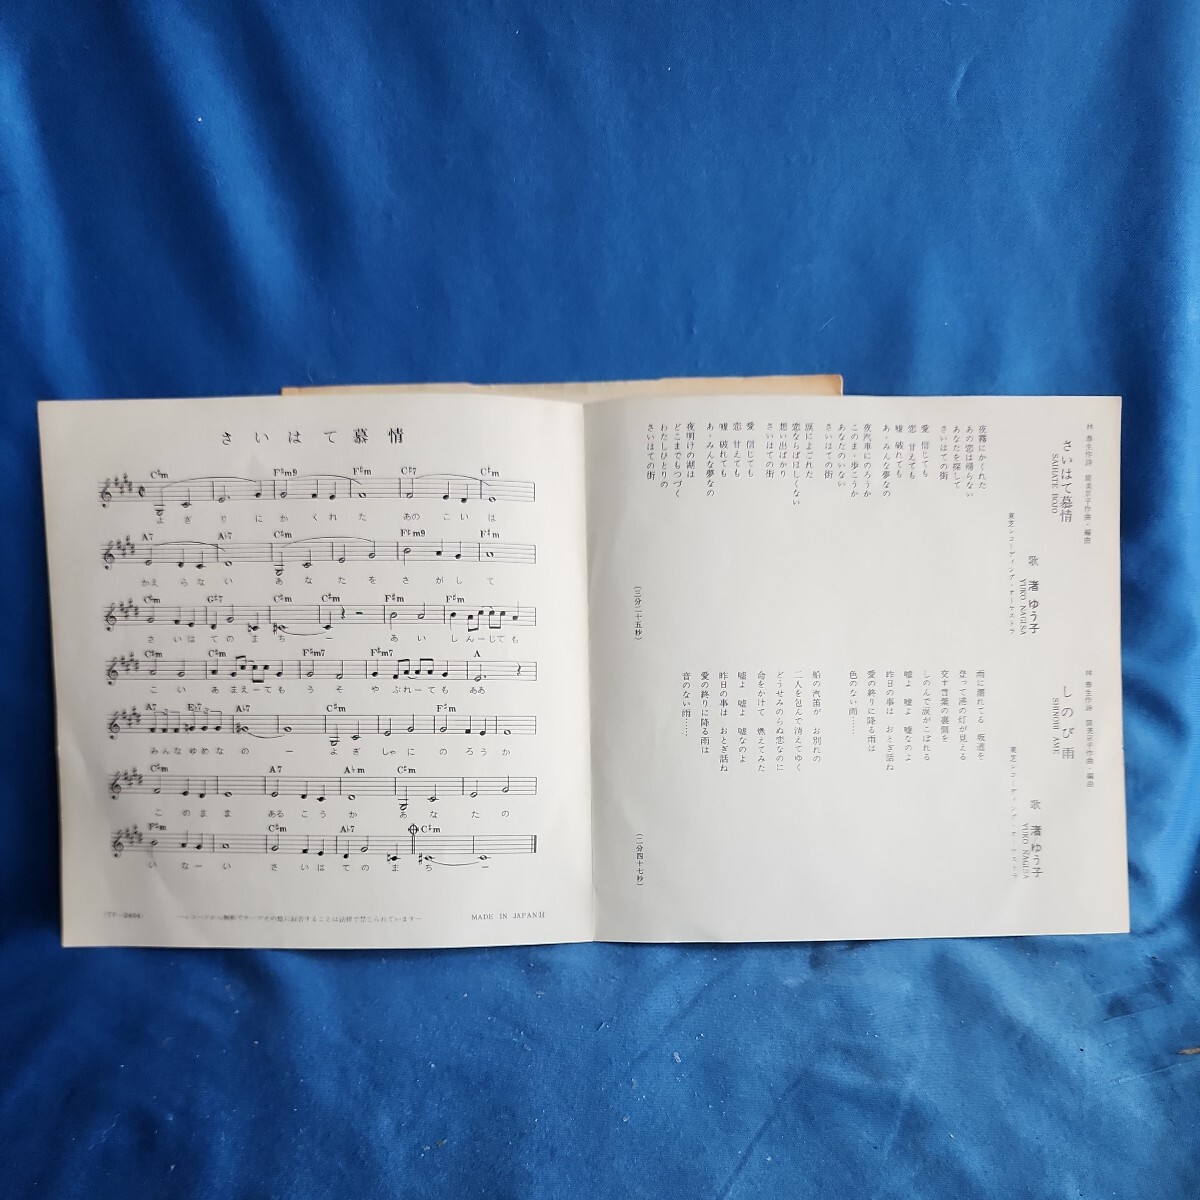 さいはて慕情
C♯m F♯m9 F♯m C♯7 C♯m
よぎりにかくれた あのこいは
A7 A♭7 C♯m F♯m9 F♯m
かえらない あなたをさがして
C♯m G♯7 C♯m C♯m F♯m F♯m
さいはてのまちー あいしんーじても
C♯m C♯m F♯m7 F♯m7 A
こいあまえーても うそやぶれーても ああ
A7 E♭7 A♭7 C♯m F♯m
みんなゆめなのー よぎしゃにのろうか
C♯m A7 A♭m C♯m
このままあるこうか あなたの
F♯m C♯m A♭7 C♯m
いなーい さいはてのまちー
(TP-2404)
MADE IN JAPAN H
さいはて慕情
SAIHATE BOJO
歌 渚ゆう子
YUKO NAGISA
東芝レコーディング・オーケストラ
夜霧にかくれた
あの恋は帰らない
あなたを探して
さいはての街
愛 信じても
恋 甘えても
嘘 破れても
あゝみんな夢なの
夜汽車にのろうか
このまゝ歩こうか
あなたのいない
さいはての街
涙によごれた
恋ならばほしくない
想い出ばかり
さいはての街
愛 信じても
恋 甘えても
嘘 破れても
あゝみんな夢なの
夜明けの湖は
どこまでもつづく
わたしひとりの
さいはての街
(三分二十五秒)
しのび雨
SHINOBI AME
歌 渚ゆう子
YUKO NAGISA
雨に濡れてる 坂道を
登って港の灯が見える
交す言葉の裏側を
しのんで涙がこぼれる
嘘よ 嘘よ 嘘なのよ
昨日の事は おとぎ話ね
愛の終りに降る雨は
色のない雨……
船の汽笛が お別れの
二人を包んで消えてゆく
どうせみのらぬ恋なのに
命をかけて 燃えてみた
嘘よ 嘘よ 嘘なのよ
昨日の事は おとぎ話ね
愛の終りに降る雨は
音のない雨……
(二分四十七秒)